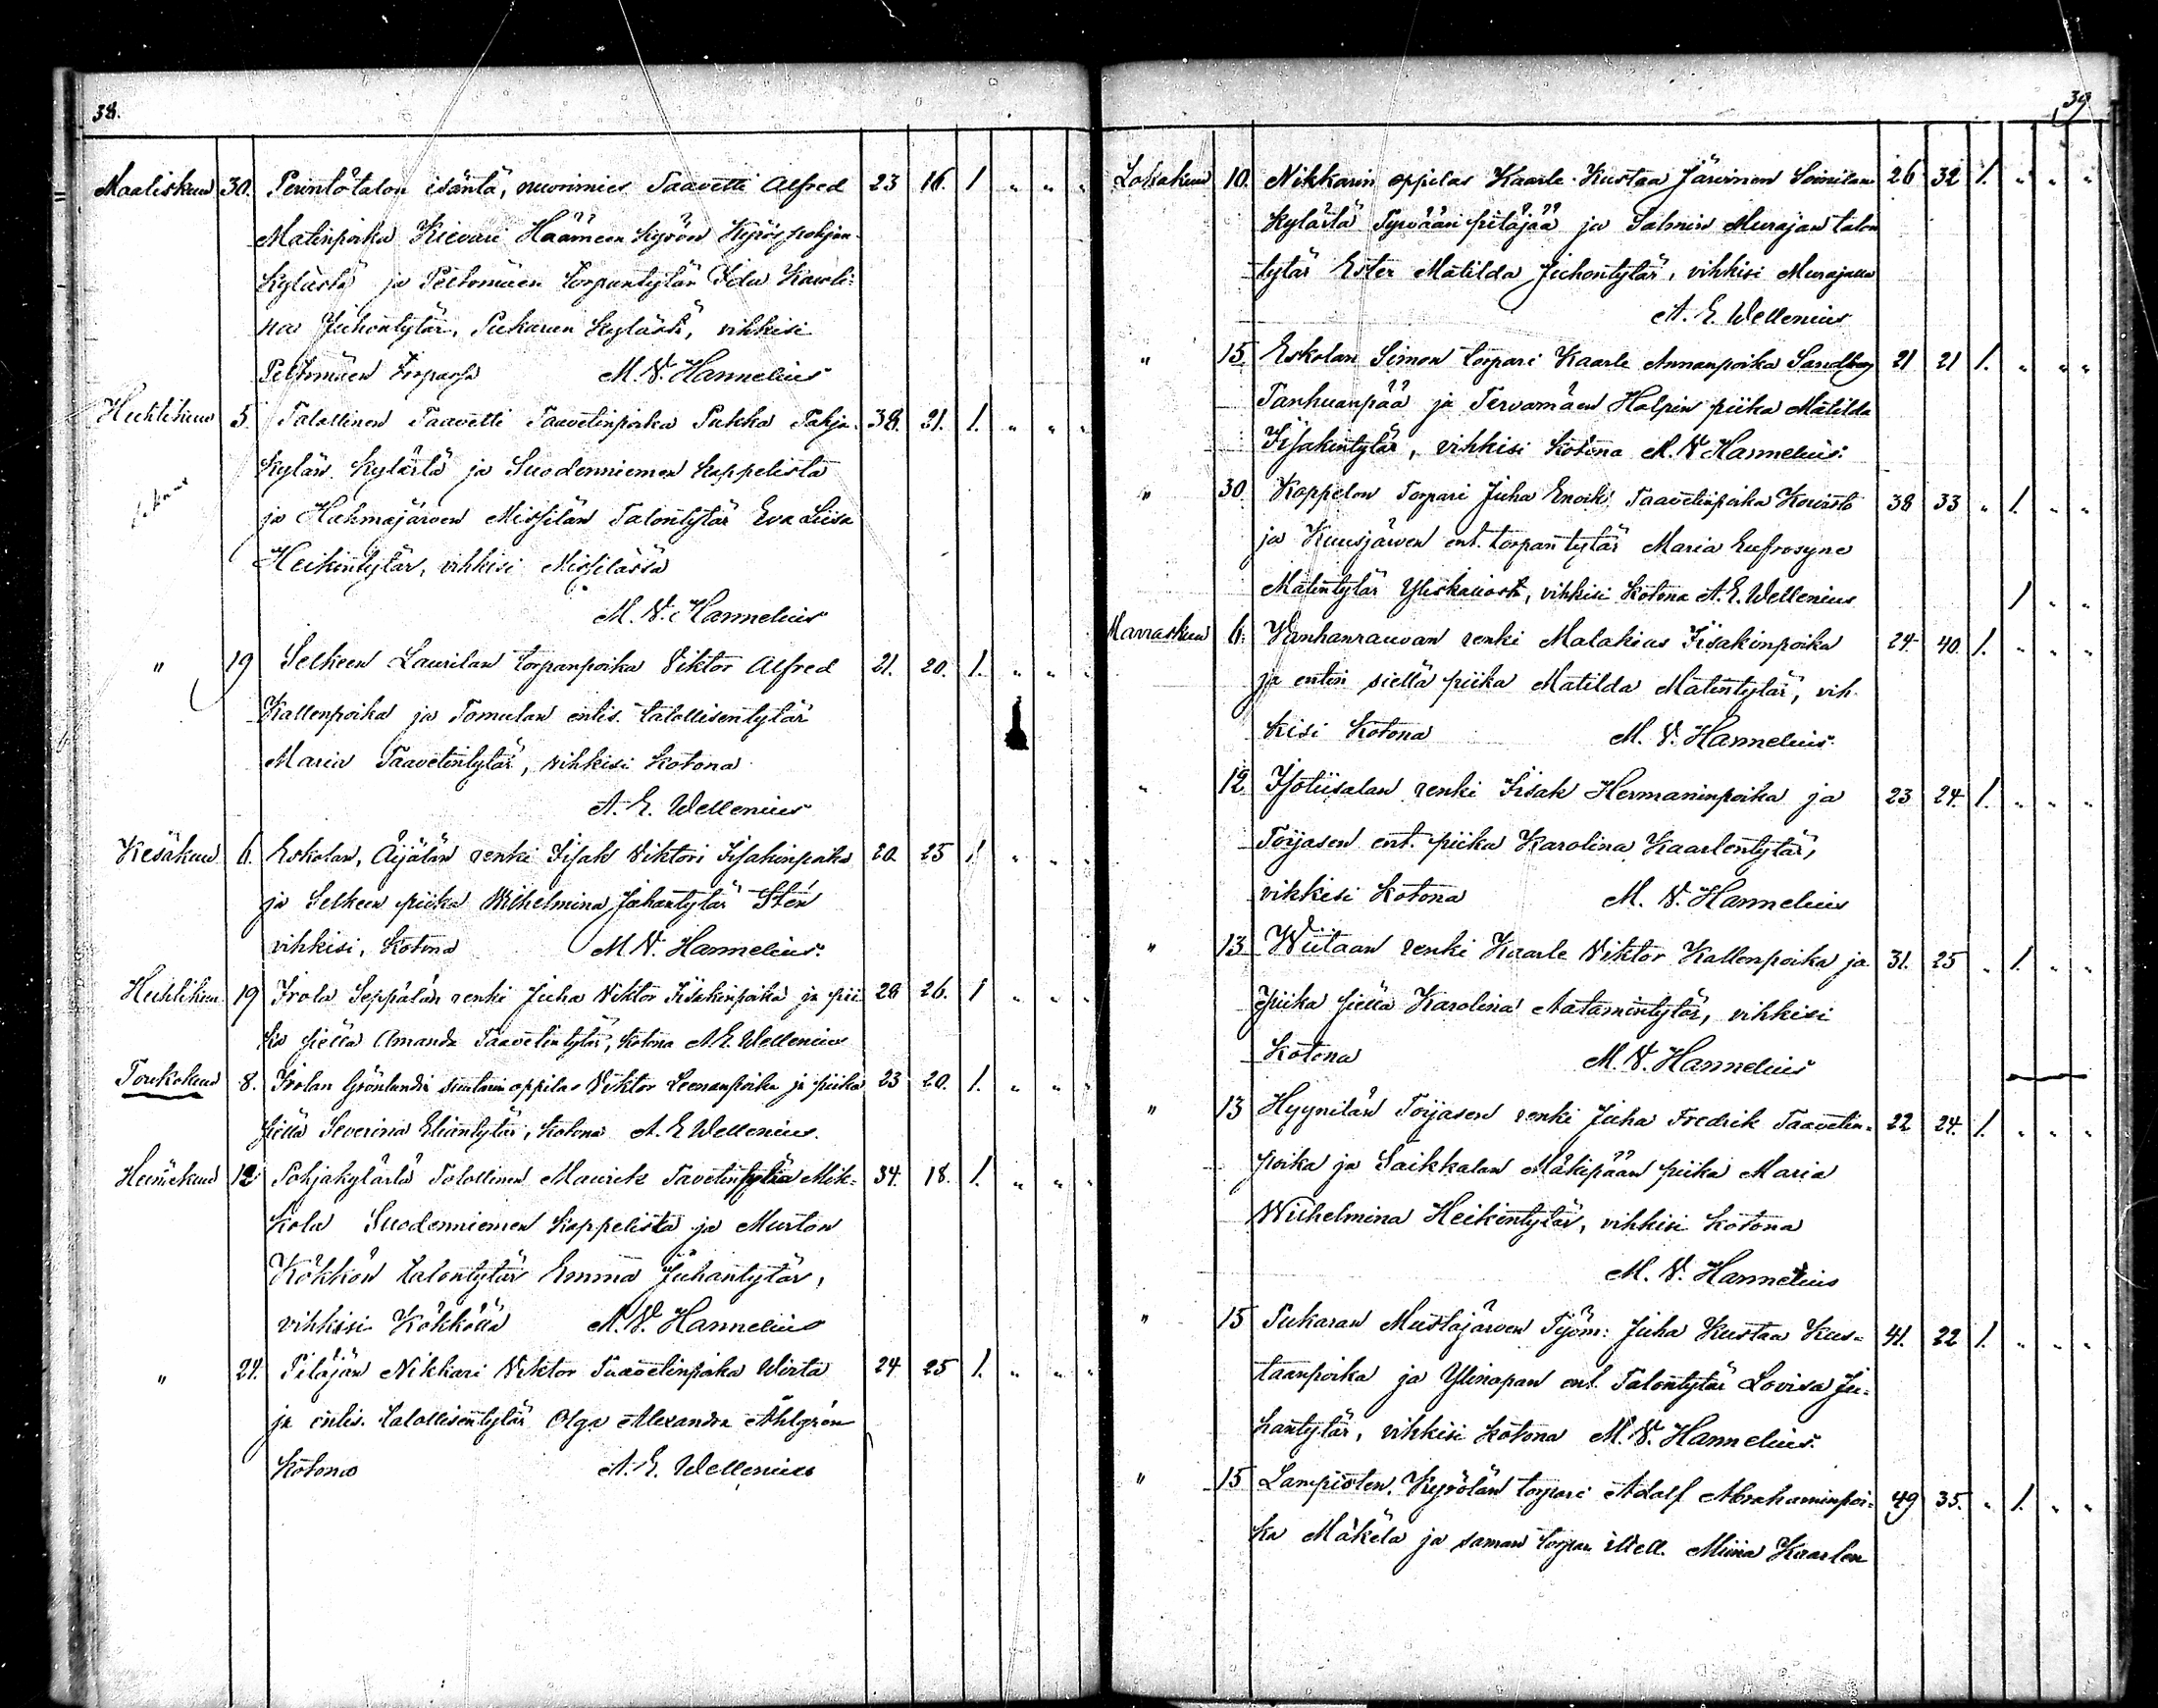 38.
Maaliskuu 30. Perintötalon isäntä, nuorimies Taavetti Alfred 23 16. 1 " " "
Matinpoika Kievari Häämeen kyrön Kyröspohjan
kylästä ja Peltomäen torpantytär Ida Karoli-
na Juhontytär, Pukaran kylästä, vihkisi
Peltomäen torpassa M. V. Hannelius
Huhtikuu 5. Talollinen Taavetti Taavetinpoika Pukka Pohja- 38. 21. 1. " " "
kylän kylästä ja Suodenniemen kappelista
ja Hahmajärven Missilän Talontytär Eva Liisa
Heikintytär, vihkisi Missilässä
M. V. Hannelius
" 19 Selkeen Laurilan torpanpoika Viktor Alfred 21. 20. 1. " " "
Kallenpoika ja Tomulan entis. talollisentytär
Maria Taavetintytär, vihkisi kotona
A. E. Wellenius
Kesäkuu 6. Eskolan, Äijälän renki Iisak Viktori Iisakinpoika 20. 25 1 " " "
ja Selkeen piika Wilhelmina Juhantytär Stén
vihkisi, kotona M. V. Hannelius.
Huhtikuu 19 Irola Seppälän renki Juha Viktor Iisakinpoika ja pii 28 26. 1 " " "
ka siellä Amanda Taavetintytär, kotona A. E. Wellenius
Toukokuu 8. Irolan Grönlundin suutarin oppilas Viktor Leenanpoika ja piika 23 20. 1. " " "
siellä Severina Eliantytär, kotona A. E. Wellenius.
Heinäkuu 12 Pohjakylästä Talollinen Maurits Tavetinpoika Mik- 34. 18. 1. " " "
kola Suodenniemen kappelista ja Murton
Kökkön talontytär Emma Juhantytär,
vihkisi Kökköllä M. V. Hannelius
" 24. Pitäjän Nikkari Viktor Taavetinpoika Wirta 24 25 1. " " "
ja entis. talollisentytär Olga Alexandra Ahlgrén
kotona A. E. Wellenius
39
Lokakuu 10. Nikkarin oppilas Kaarle Kustaa Järvinen Soinilan 26 32 1. " " "
kylästä Tyrvään pitäjää ja Salmin Murajan talon
tytär Ester Matilda Juhontytär, vihkisi Murajalla
A. E. Wellenius
" 15 Eskolan Simon torpari Kaarle Annanpoika Sandberg 21 21 1. " " "
Tanhuanpää ja Tervamäen Halpin piika Matilda
Iisakintytär, vihkisi kotona M. V. Hannelius.
" 30. Koppelon Torpari Juha Enok Taavetinpoika Kouvisto 38 33 " 1. " "
ja Kuusjärven ent. torpantytär Maria Eufrosyne
Matintytär Yliskalliost, vihkisi kotona A. E. Wellenius 1 " "
Marraskuu 6. Vanhanrauvan renki Malakias Iisakinpoika 24. 40. 1. " " "
ja entin siellä piika Matilda Matintytär, vih-
kisi kotona M. V. Hannelius.
" 12 Isotiisalan renki Iisak Hermaninpoika ja 23 24 1. " " "
Toijasen ent. piika Karolina Kaarlentytär,
vihkisi kotona M. V. Hannelius
" 13 Wiitaan renki Kaarle Viktor Kallenpoika ja 31. 25 " 1. " "
piika siellä Karolina Aatamintytär, vihkisi
kotona M. V. Hannelius
" 13 Hyynilän Toijasen renki Juha Fredrik Taavetin- 22 24. 1. " " "
poika ja Saikkalan Mäkipään piika Maria
Wilhelmina Heikintytär, vihkisi kotona
M. V. Hannelius
" 15 Pukaran Mustajärven Työm: Juha Kustaa Kus- 41. 22 1. " " "
taanpoika ja Ylinapan ent. Talontytär Lovisa Ju-
hantytär, vihkisi kotona M. V. Hannelius.
" 15 Lampisten. Kyrölän torpari Adolf Abrahaminpoi- 49 35. " 1. " "
ka Mäkelä ja saman torpan itsell. Miina Kaarlen